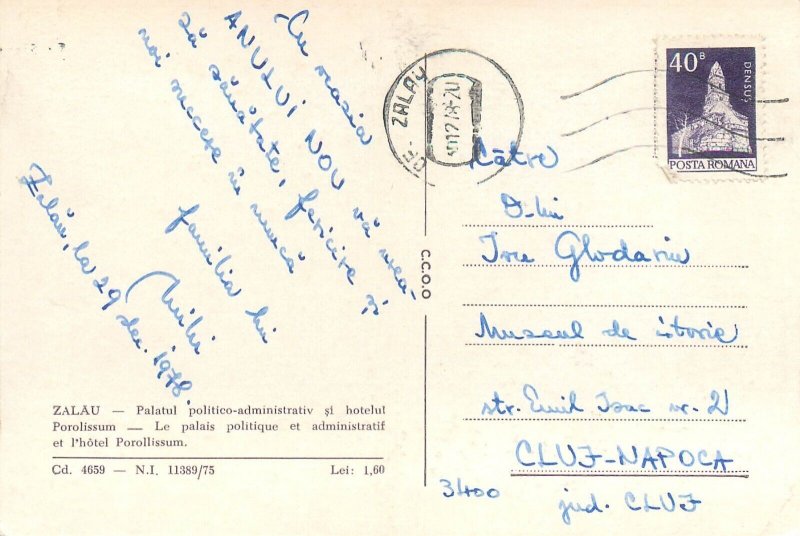 Cu ocazia
ANULUI NOU vă urează
sănătate, fericire și
noi succese în muncă
familia lui
Zalău, la 29 dec. 1978.
ZALĂU — Palatul politico-administrativ și hotelul
Porolissum — Le palais politique et administratif
et l'hôtel Porollissum.
Cd. 4659 — N.I. 11389/75 Lei: 1,60
C.C.O.O
OF. ZALAU
40 B
DENSUȘ
POSTA ROMANA
Către
D-lui
Glodariu
Muzeul de istorie
str. Emil Isac nr. 2
CLUJ-NAPOCA
3400 jud. CLUJ